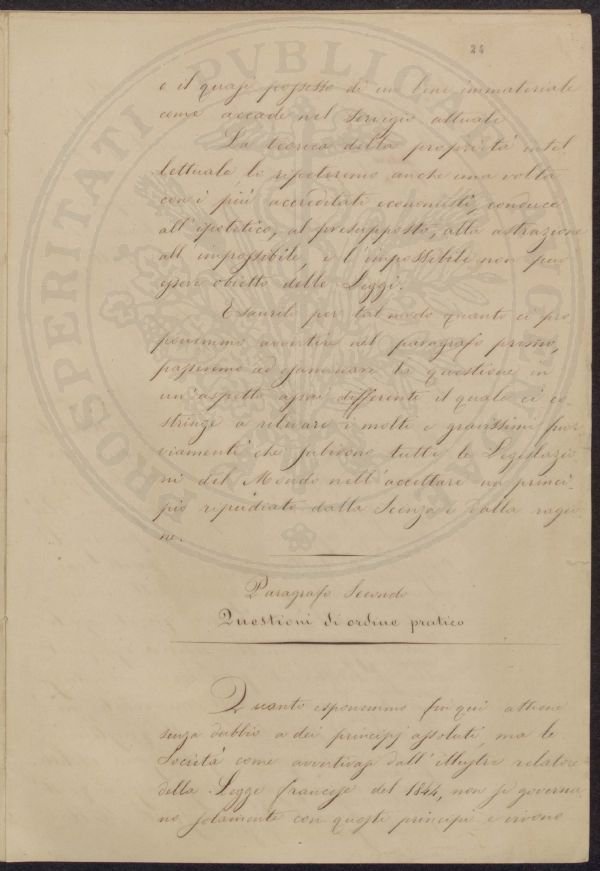 24
e il quasi possesso di un bene immateriale
come accade nel servigio attuale
La teorica della proprietà intel
lettuale, lo ripeteremo anche una volta
con i più accreditati economisti, conduce
all'ipotetico, al presupposto, alla astrazione
all'impossibile, e l'impossibile non può
essere obietto delle Leggi.
Esaurito per tal modo quanto ci pro
ponemmo avvertire nel paragrafo primo,
passeremo ad esaminare la questione in
un'aspetto assai differente il quale ci co-
stringe a rilevare i molti e gravissimi fuor
viamenti che subirono tutte le Legislazio-
ni del Mondo nell'accettare un princi-
pio ripudiato dalla Scienza e dalla ragio
ne.
Paragrafo Secondo
Questioni di ordine pratico
Quanto esponemmo fin quì attiene
senza dubbio a dei principj assoluti, ma le
Società come avvertivasi dall'illustre relatore
della Legge francese del 1844, non si governa
no solamente con questi principi e vivono
PROSPERITATI PVBLICAE